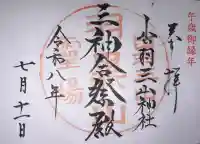 午歳御縁年
奉拝
出羽三山神社
三神合祭殿
令和八年
七月十一日